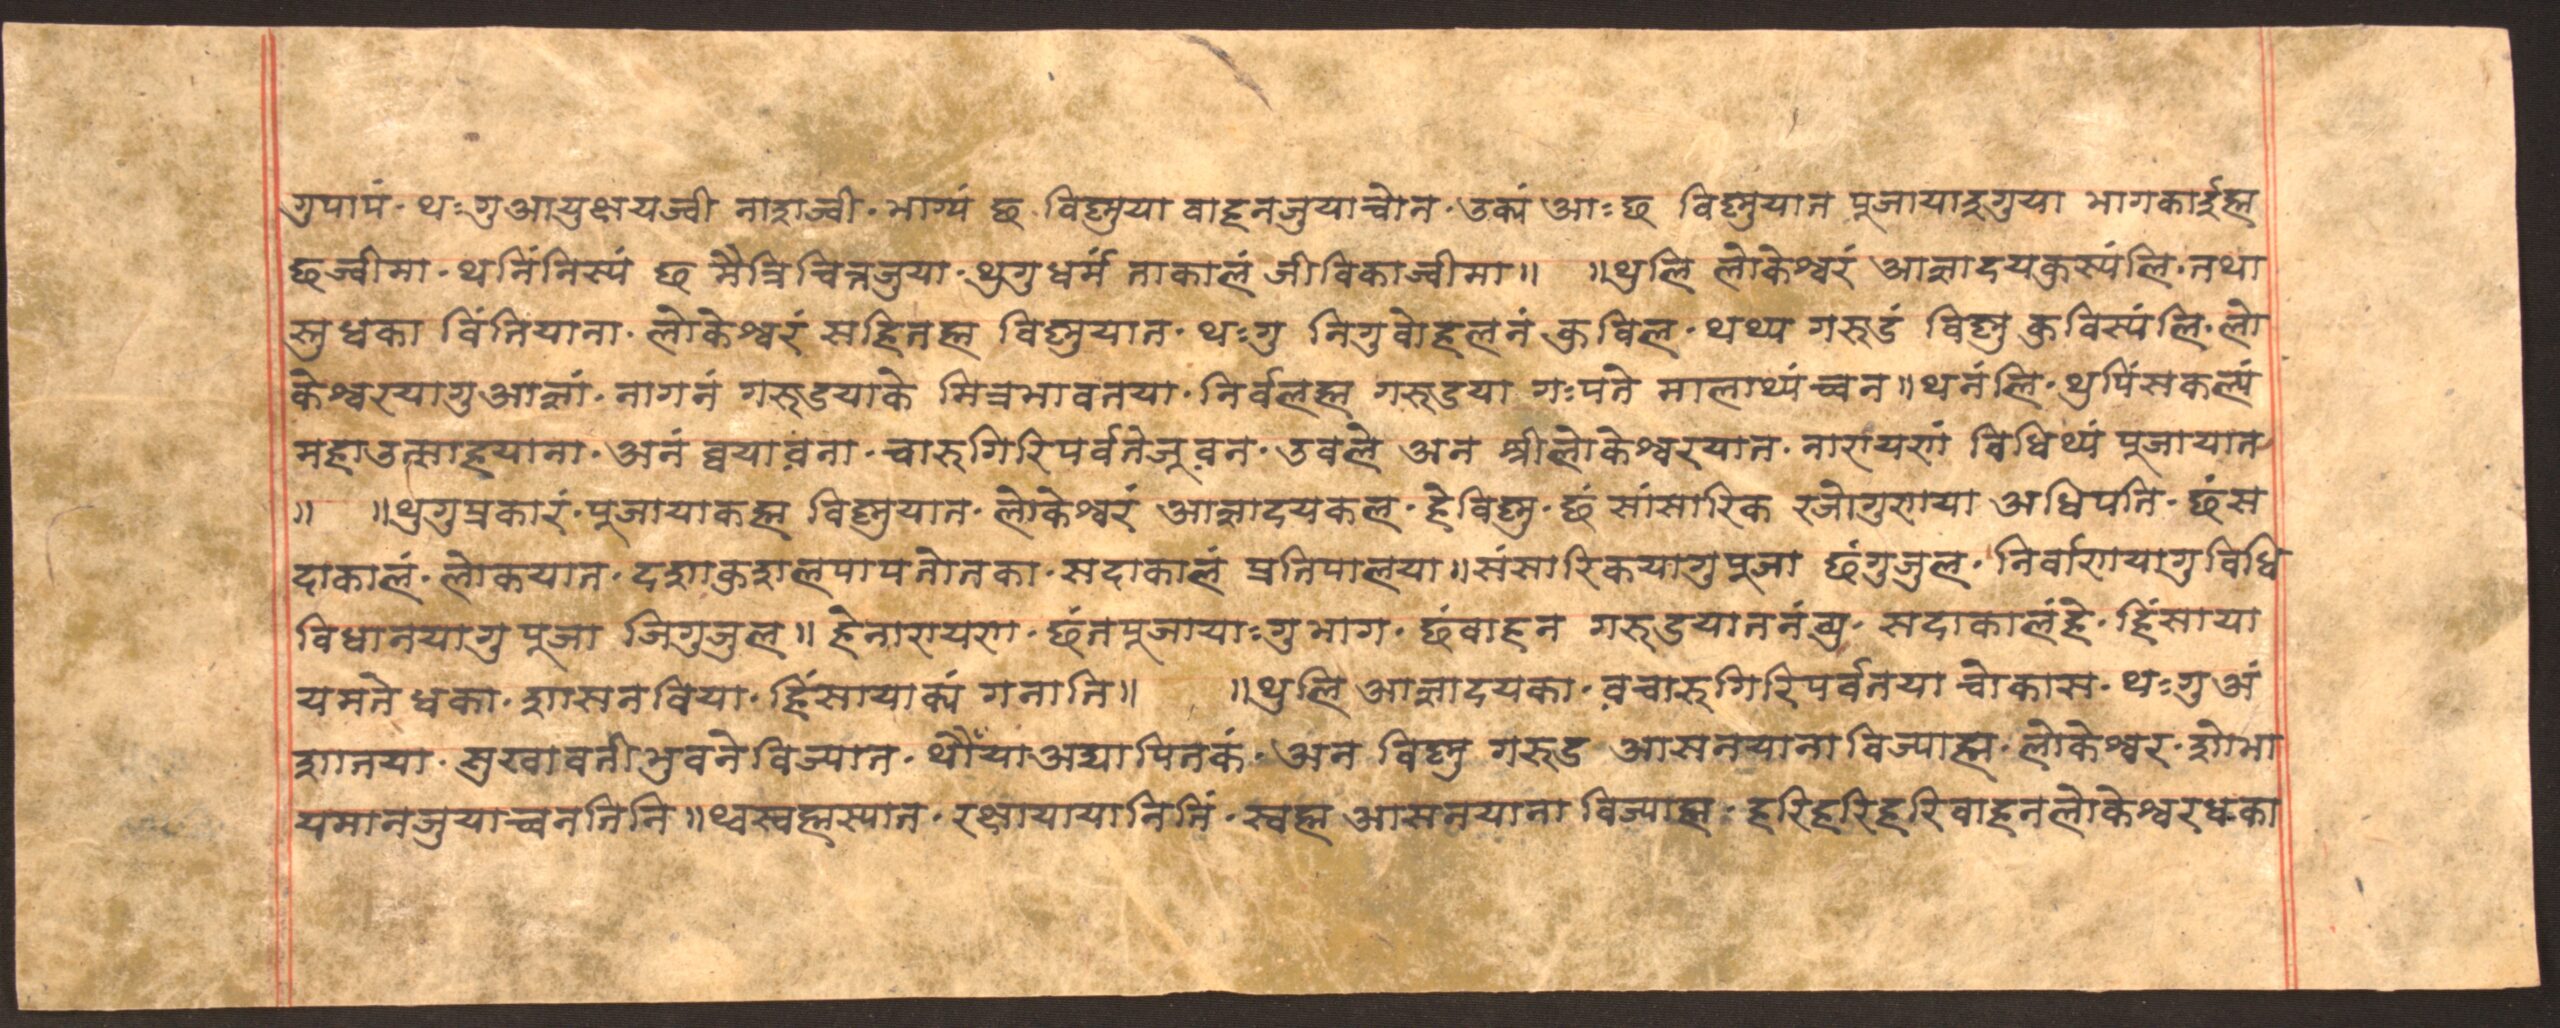 गुपापं· थःगुआयुक्षयज्वी नाशज्वी· भाग्यं छ विष्णुया वाहनजुयाचोन· उक्यं आः छ विष्णुयात पूजायाइगुया भागकाईह्म
छज्वीमा· थनिंनिस्यं छ मैत्रिचित्तजुया· थुगुधर्म्म ताकालं जीविकाज्वीमा॥ ॥थुलि लोकेश्वरं आज्ञादयकुस्यंलि· तथा
स्तु धका विंतियाना· लोकेश्वरं सहितह्म विष्णुयात· थःगु निगुवोहलनं कुविल· थथ्य गरूडं विष्णु कुविस्यंलि· लो
केश्वरयागुआज्ञां· नागनं गरूडयाके मित्रभावतया· निर्वलह्म गरूडया गःपते मालाथ्यंच्वन॥थनंलि· थुपिंसकल्यं
महाउत्साहयाना· अनं ब्वयावना· चारुगिरिपर्वतेजूवन· उवले अन श्रीलोकेश्वरयात· नारायणं विधिथ्यं पूजायात
॥ ॥थुगुप्रकारं· पूजायाकह्म विष्णुयात· लोकेश्वरं आज्ञादयकल· हेविष्णु· छं सांसारिक रजोगुणया अधिपति· छंस
दाकालं· लोकयात· दशाकुशलपापतोतका· सदाकालं प्रतिपालया॥संसारिकयागुपूजा छंगुजुल· निर्वाणयागुविधि
विधानयागु पूजा जिगुजुल॥ हेनारायण· छंतपूजायाःगुभाग· छंवाहन गरुडयातनंव्यु· सदाकालंहे· हिंसाया
यमते धका· शासनविया· हिंसायाक्यं गनाति॥ ॥थुलि आज्ञादयका· वचारुगिरिपर्वतया चोकास· थःगुअं
शतया· सुखावतीभुवनेविज्यात· थौंयाअद्यापितकं· अन विष्णु गरुड आसनयानाविज्याह्म· लोकेश्वर· शोभा
यमानजुयाच्वनतिनि॥थ्वस्वह्मस्यात· रक्षायायानितिं· स्वह्म आसनयाना विज्याह्म· हरिहरिहरिवाहनलोकेश्वरधका